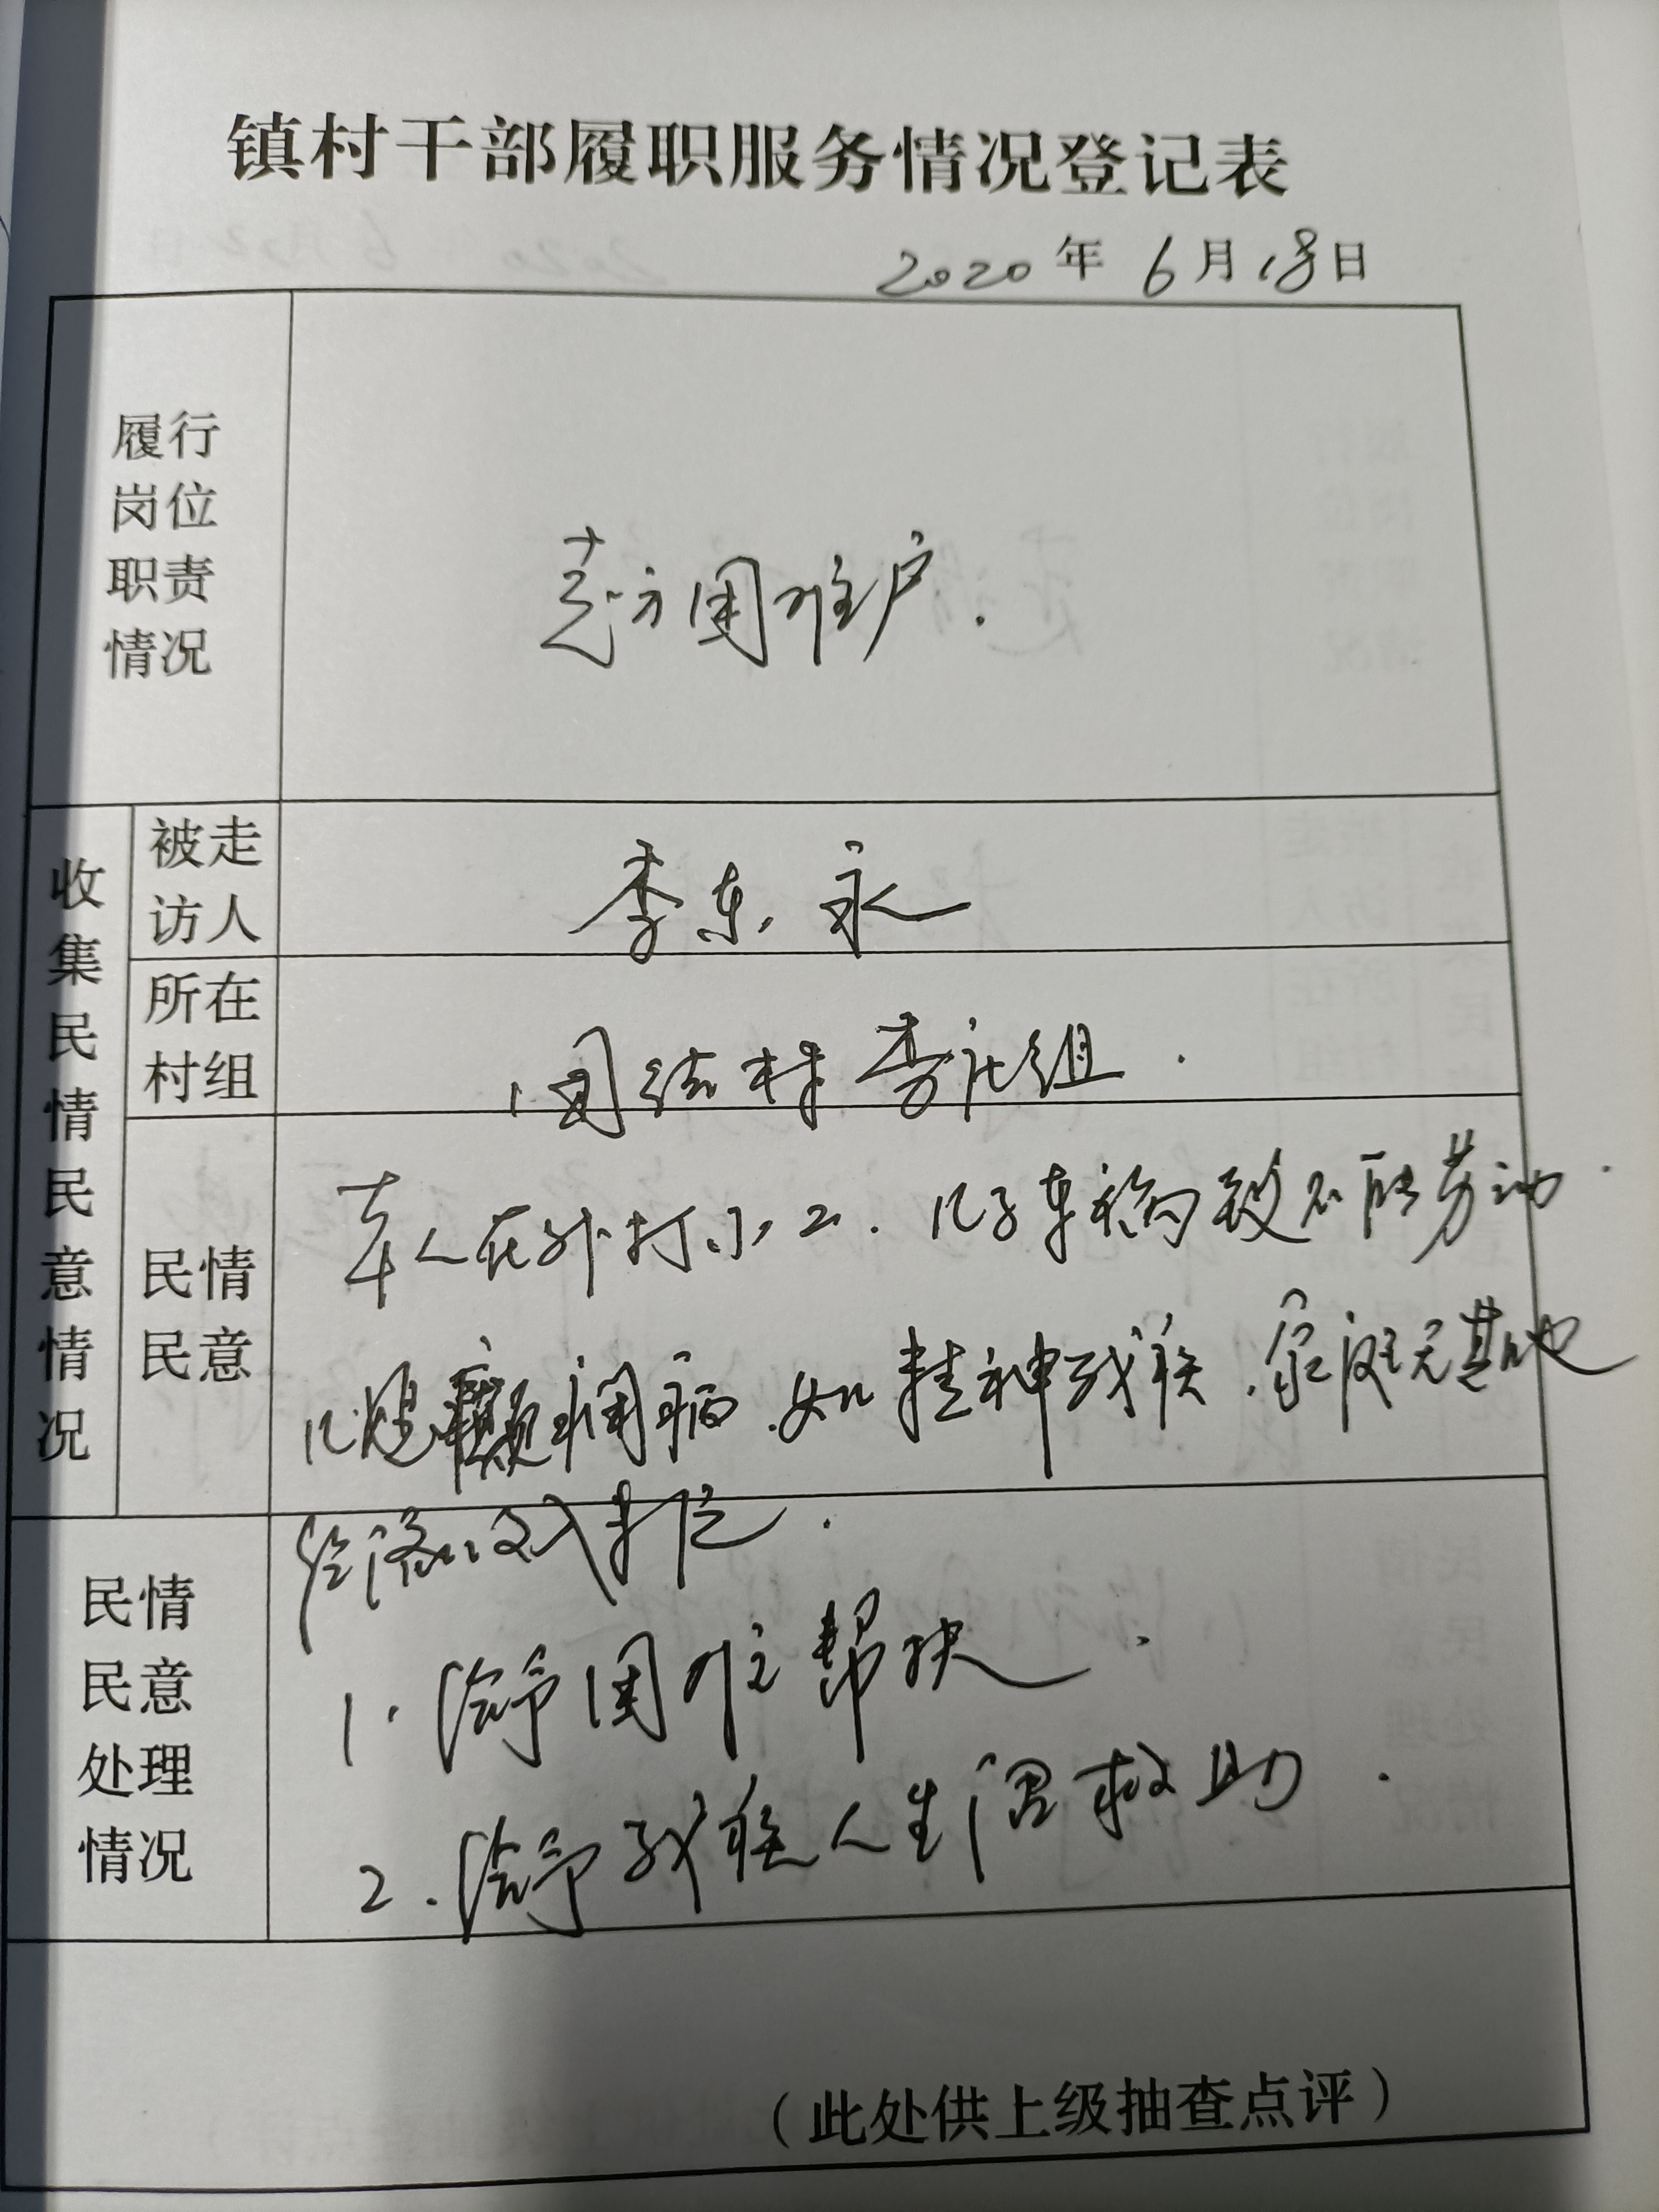 镇村干部履职服务情况登记表
2020年6月18日
履行
岗位
职责
情况
走访困难户.
收集民情民意情况
被走
访人
李东永
所在
村组
团结村李庄组.
民情
民意
本人在外打小工.儿子车祸致不能劳动.
儿媳癫痫病.女儿精神残疾.家庭无其他
经济收入来源.
民情
民意
处理
情况
1.给予困难帮扶.
2.给予残疾人生活救助.
(此处供上级抽查点评)